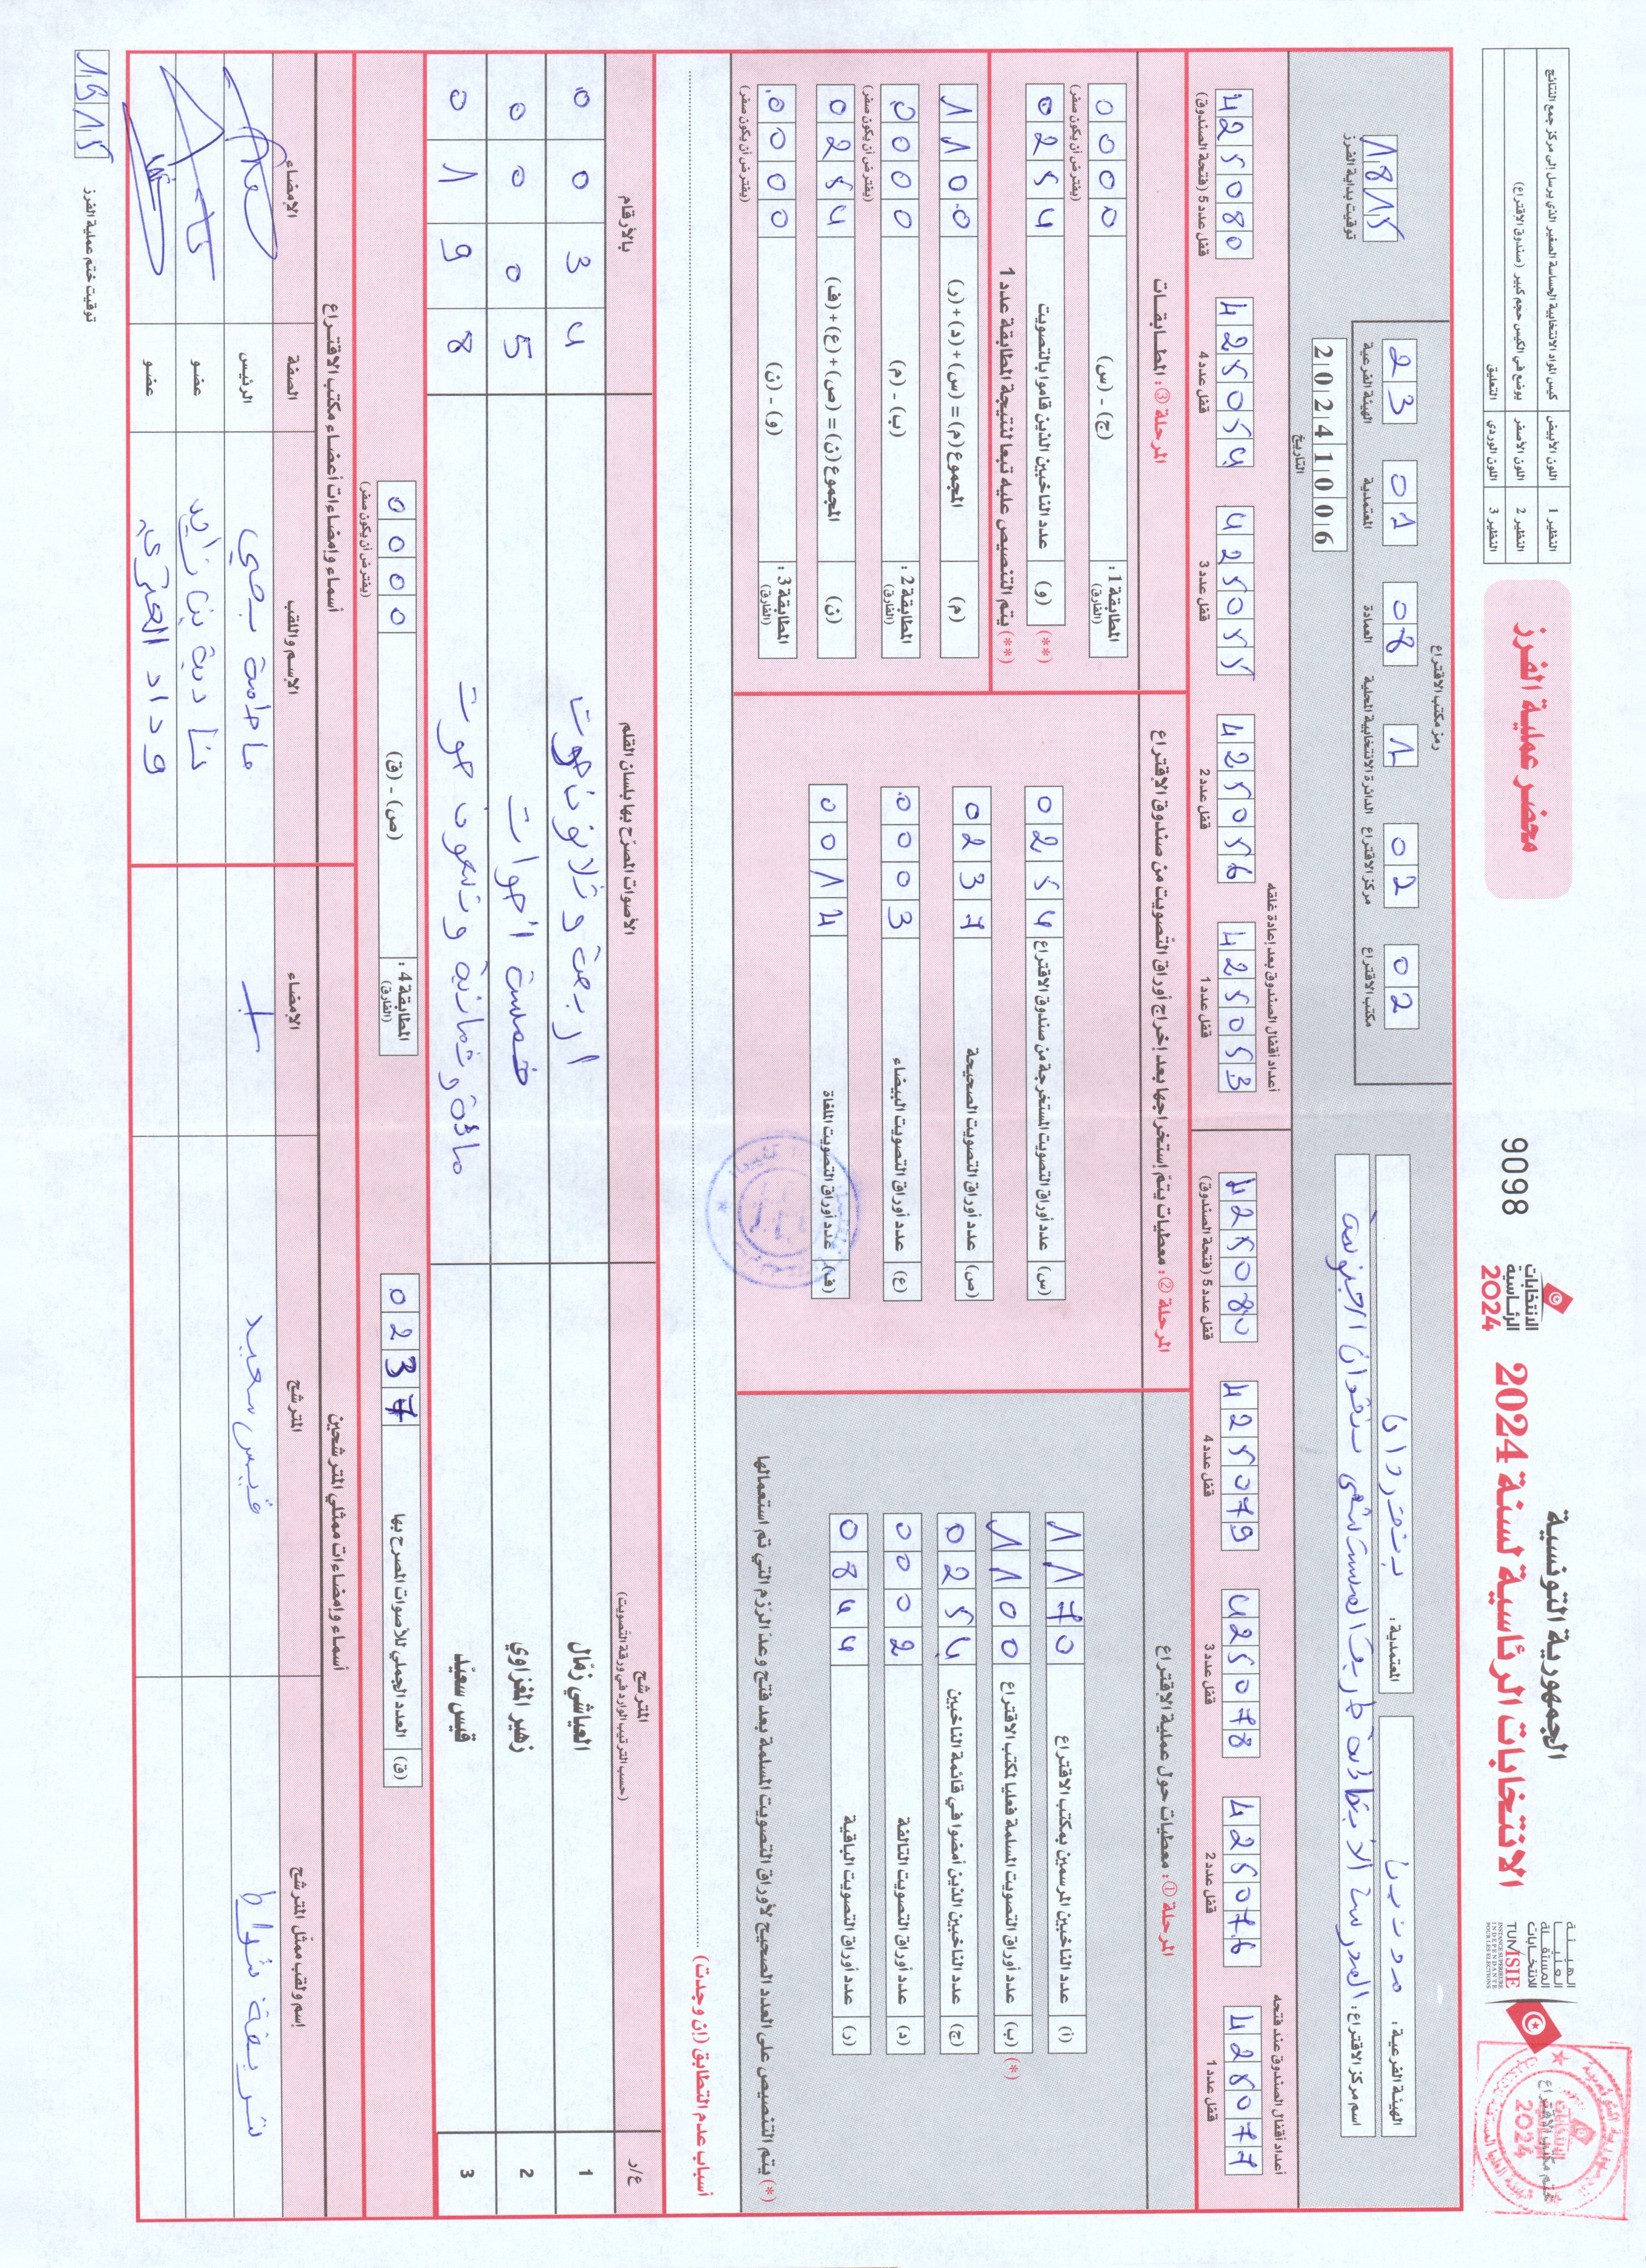 الجمهورية التونسية
الانتخابات الرئاسية لسنة 2024
الهيئة العليا المستقلة للانتخابات
TUNISIE
INSTANCE SUPERIEURE INDEPENDANTE POUR LES ELECTIONS
ختم مكتب الاقتراع
الانتخابات الرئاسية 2024
9098
محضر عملية الفرز
النظير 1 اللون الأبيض كيس المواد الانتخابية الحساسة الصغير الذي يرسل إلى مركز جمع النتائج
النظير 2 اللون الأصفر يوضع في الكيس حجم كبير (صندوق الاقتراع)
النظير 3 اللون الوردي التعليق
الهيئة الفرعية: مدنين
المعتمدية: بنقردان
اسم مركز الاقتراع: المدرسة الابتدائية طريق المستشفى بنقردان الجنوبية
رمز مكتب الاقتراع
23 01 08 1 02 02
الهيئة الفرعية المعتمدية العمادة الدائرة الانتخابية المحلية مركز الاقتراع مكتب الاقتراع
20241006
التاريخ
1815
توقيت بداية الفرز
أعداد أقفال الصندوق عند فتحه
425077 قفل عدد 1
425076 قفل عدد 2
425078 قفل عدد 3
425079 قفل عدد 4
425080 قفل عدد 5 (فتحة الصندوق)
أعداد أقفال الصندوق بعد إعادة غلقه
425053 قفل عدد 1
425056 قفل عدد 2
425055 قفل عدد 3
425054 قفل عدد 4
425080 قفل عدد 5 (فتحة الصندوق)
المرحلة ①: معطيات حول عملية الاقتراع
(أ) عدد الناخبين المرسمين بمكتب الاقتراع 1170
(*) (ب) عدد أوراق التصويت المسلمة فعليا لمكتب الاقتراع 1100
(ج) عدد الناخبين الذين أمضوا في قائمة الناخبين 0254
(د) عدد أوراق التصويت التالفة 0002
(ر) عدد أوراق التصويت الباقية 0844
(*) يتم التنصيص على العدد الصحيح لأوراق التصويت المسلمة بعد فتح وعد الرزم التي تم استعمالها
المرحلة ②: معطيات يتم إستخراجها بعد إخراج أوراق التصويت من صندوق الاقتراع
(س) عدد أوراق التصويت المستخرجة من صندوق الاقتراع 0254
(ص) عدد أوراق التصويت الصحيحة 0237
(ع) عدد أوراق التصويت البيضاء 0003
(ف) عدد أوراق التصويت الملغاة 0014
المرحلة ③: المطابقات
المطابقة 1: (الفارق) (ج) - (س) 0000
(يفترض أن يكون صفر)
(**) (و) عدد الناخبين الذين قاموا بالتصويت 0254
(**) يتم التنصيص عليه تبعا لنتيجة المطابقة عدد 1
(م) المجموع (م) = (س) + (د) + (ر) 1100
المطابقة 2: (الفارق) (ب) - (م) 0000
(يفترض أن يكون صفر)
(ن) المجموع (ن) = (ص) + (ع) + (ف) 0254
المطابقة 3: (الفارق) (و) - (ن) 0000
(يفترض أن يكون صفر)
أسباب عدم التطابق (إن وجدت)
ع/ر المترشح (حسب الترتيب الوارد في ورقة التصويت) الأصوات المصرّح بها بلسان القلم بالأرقام
1 العياشي زمّال اربعة وثلاثون صوت 0034
2 زهير المغزاوي خمسة اصوات 0005
3 قيس سعيّد مائة وثمانية وتسعون صوت 0198
(ق) العدد الجملي للأصوات المصرح بها 0237
المطابقة 4: (الفارق) (ص) - (ق) 0000
(يفترض أن يكون صفر)
أسماء وإمضاءات ممثلي المترشحين
إسم ولقب ممثل المترشح المترشح الإمضاء
شريفة شواط قيس سعيد
أسماء وإمضاءات أعضاء مكتب الاقتراع
الإسم واللقب الصفة الإمضاء
الرئيس
نادية بن زايد عضو
وداد العتري عضو
1915
توقيت ختم عملية الفرز